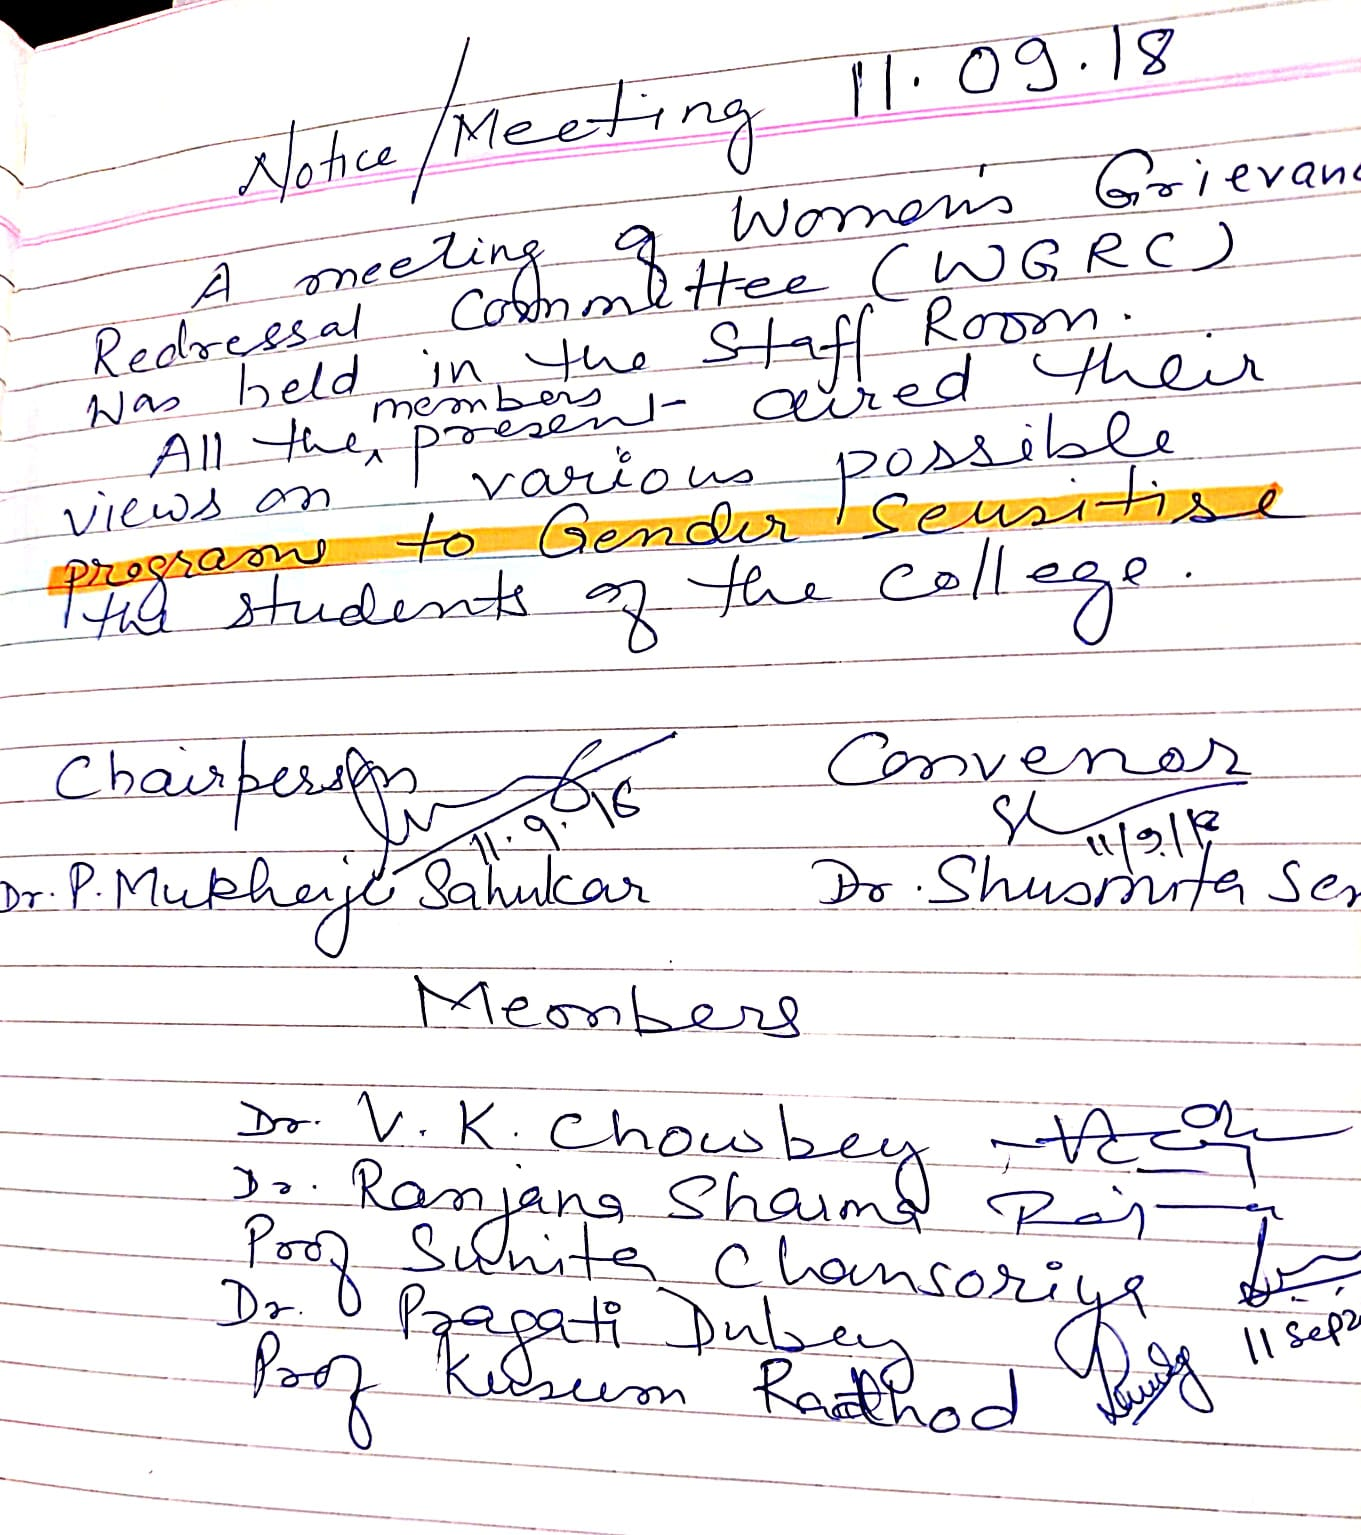 Notice/Meeting 11.09.18
A meeting of Women's Grievanc
Redressal Committee (WGRC)
was held in the Staff Room.
All the members present aired their
views on various possible
programs to Gender Sensitise
the students of the college.
Chairperson Convenor
11.9.18 11/9/18
Dr. P. Mukherje Sahukar Dr. Shusmita Sen
Members
Dr. V. K. Chowbey
Dr. Ranjana Sharma
Prof Sunita Chansoriya
Dr. Pragati Dubey 11 Sep
Prof Kusum Rathod